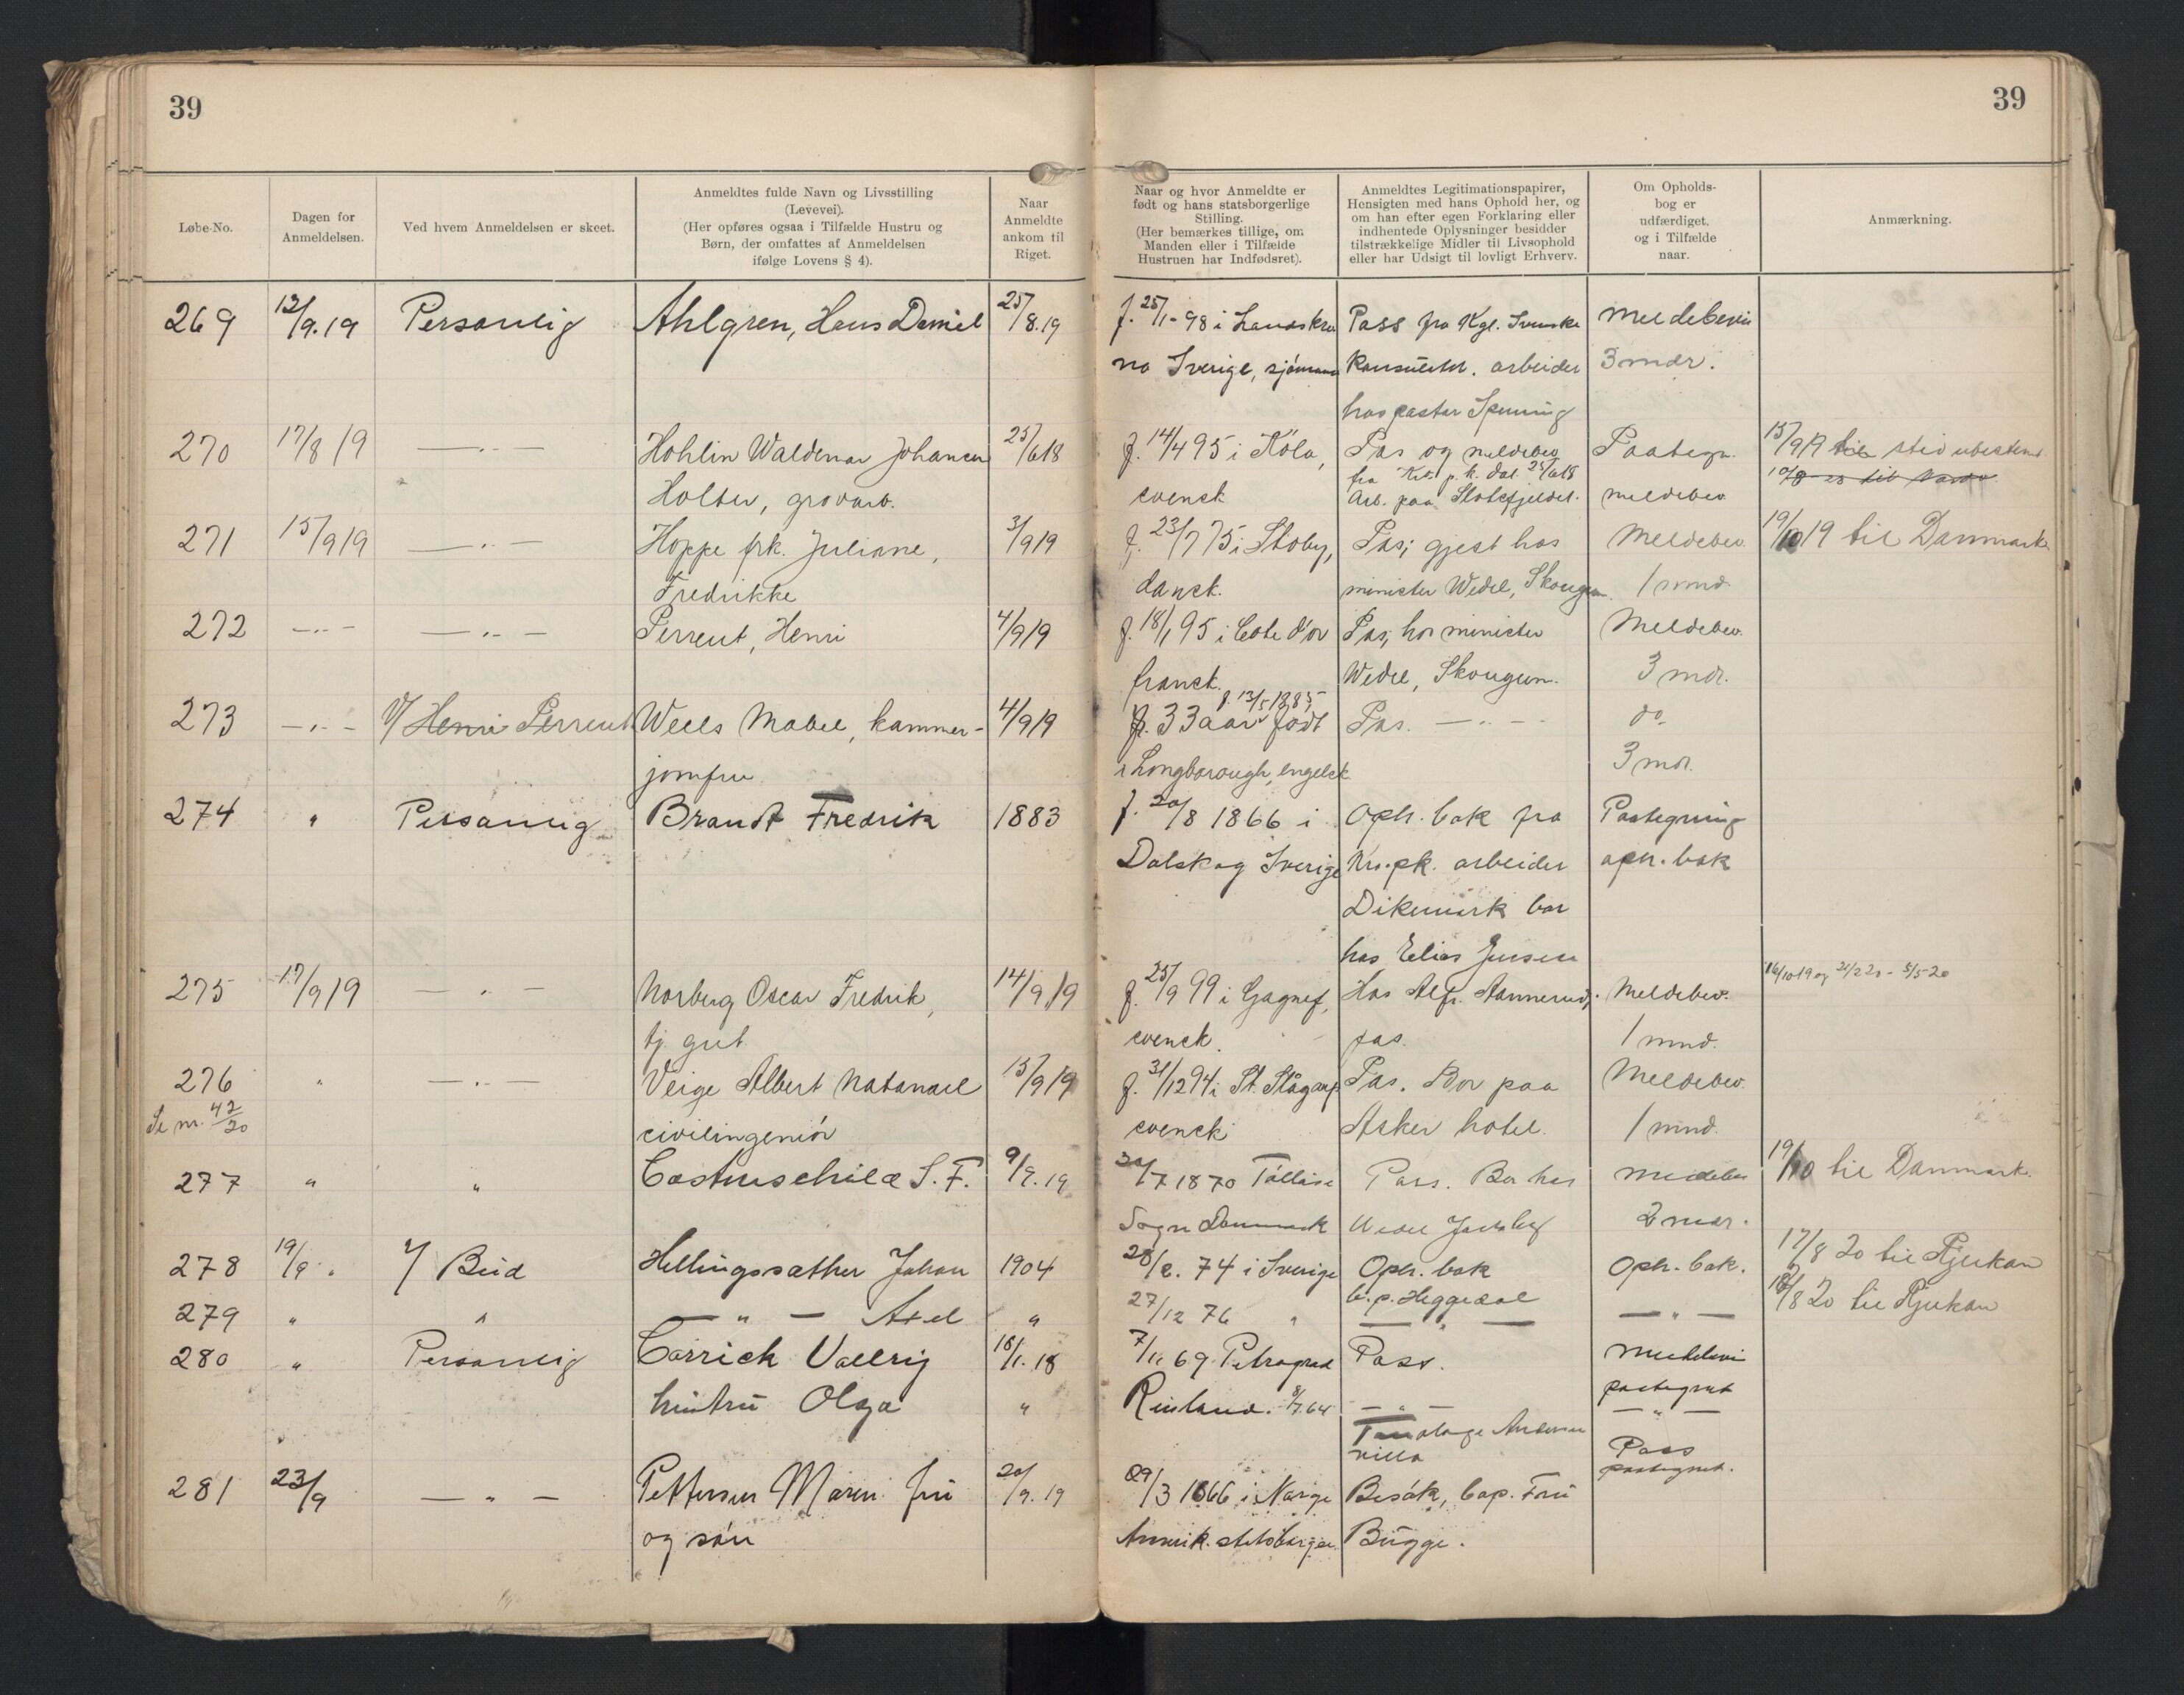 39
39
Løbe-No.
Dagen for
Anmeldelsen.
Ved hvem Anmeldelsen er skeet.
Anmeldtes fulde Navn og Livsstilling
(Levevei).
(Her opføres ogsaa i Tilfælde Hustru og
Børn, der omfattes af Anmeldelsen
ifølge Lovens § 4).
Naar
Anmeldte
ankom til
Riget.
Naar og hvor Anmeldte er
født og hans statsborgerlige
Stilling.
(Her bemærkes tillige, om
Manden eller i Tilfælde
Hustruen har Indfødsret).
Anmeldtes Legitimationspapirer,
Hensigten med hans Ophold her, og
om han efter egen Forklaring eller
indhentede Oplysninger besidder
tilstrækkelige Midler til Livsophold
eller har Udsigt til lovligt Erhverv.
Om Opholds-
bog er
udfærdiget.
og i Tilfælde
naar.
Anmærkning.
269 12/9.19 Personlig Ahlgren, Hans Daniel 25/8.19 f. 25/1-98 i Landskro Pass fra Kgl. Svenske meldebevis
na Sverige, sjömann Konsulat. arbeider 3 mdr.
hos pastor
270 17/8 19 —„— Hohlin Waldemar Johansen 25/6 18 f. 14/4 95 i Köla, Pas og meldebev. Paategn. 15/9 19 til sted ubestemt
fra Kra. p. k. dat. 25/6 18
Holter, grovarb. svensk Arb. paa Slotsfjeldet. meldebev.
271 15/9 19 —„— Hoppe frk. Juliane, 3/9 19 f. 23/7 75 i Stoby, Pas; gjest hos Meldebev. 19/10 19 til Danmark.
Fredrikke dansk. minister Wedel, Skougum. 1 mnd.
272 —„— —„— Perreut, Henri 4/9 19 f. 18/1 95 i Cote d'or Pas; hos minister Meldebev.
fransk. Wedel, Skougum. 3 mdr.
f. 13/5 1885
273 —„— v/ Henri Perreut Wells Mabel, kammer- 4/9 19 f. 33 aar født Pas. —„— do.
jomfru i Longborough, engelsk 3 mdr.
274 " Personlig Brandt Fredrik 1883 f. 20/8 1866 i Oph. bok fra Paategning
Dalskog Sverige Kra. pk. arbeider oph. bok
Dikemark bor
hos Elias Jensen
275 17/9 19 —„— Norberg Oscar Fredrik, 14/9 19 f. 25/9 99 i Gagnef, Hos Alfr. Aannerud; Meldebev. 16/10 19 og 21/2 20 - 5/5-20
tj. gut. svensk. pas. 1 mnd.
276 " —„— Veige Albert Natanael 15/9 19 f. 31/12 94 i St. Slågarp Pas. Bor paa Meldebev.
Se nr. 42/20 civilingeniör svensk Asker hotel. 1 mnd.
277 " " Castenschild S. F. 9/9.19 30/7 1870 Tölløse Pass. Bor hos meldebev 19/10 til Danmark.
Sogn Danmark Wedel Jarlsberg 2 mdr.
278 19/9 " v/ Bud Hellingssæther Johan 1904 28/2. 74 i Sverige Oph. bok Oph. bok. 17/8 20 til Rjukan
b. p. Heggedal
279 " " —„— Axel " 27/12 76 " —„— —„— 18/8 20 til Rjukan
280 " Personlig Carrick Vallerij 18/1. 18 7/11 69 Petrograd Pass. meldebevi
paategnet
hustru Olga " Rusland. 8/7.64 —„— —„—
Andersen
villa Pass
paategnet.
281 23/9 —„— Pettersen Maren fru 20/9. 19 29/3 1866 i Norge Besök, Cap. Fru
og sön Amerik. statsborger. Bugge.